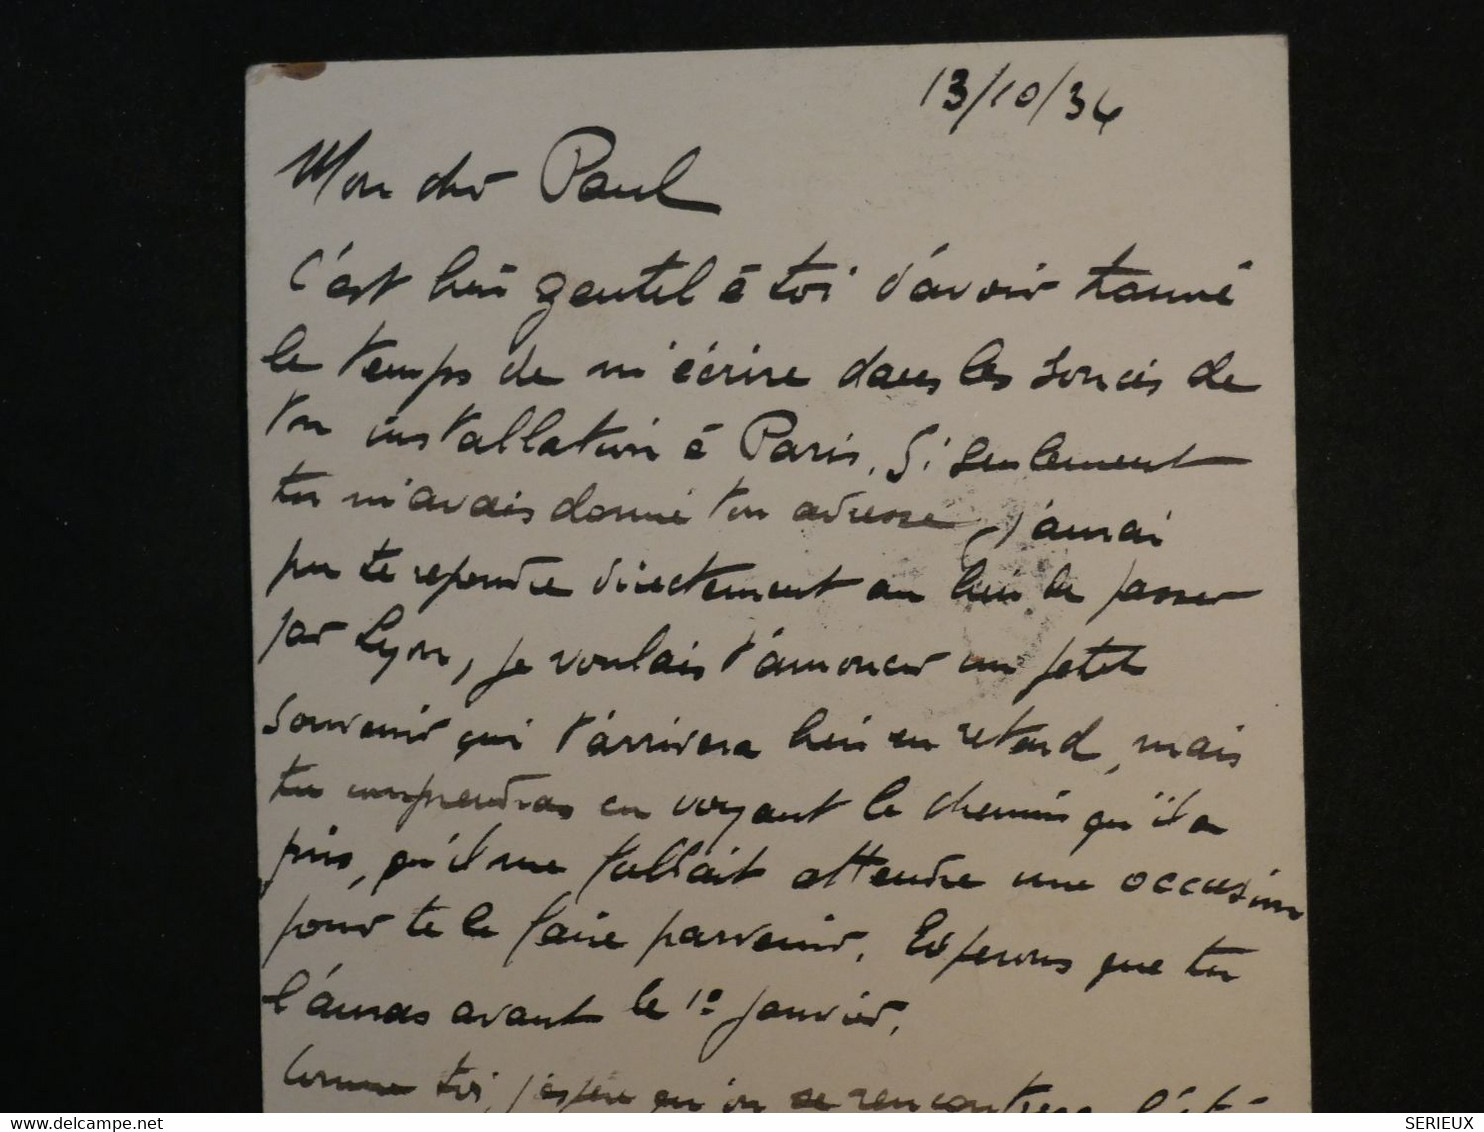 13/10/34
Mon cher Paul
C'est bien gentil à toi d'avoir trouvé
le temps de m'écrire dans les soucis de
ton installation à Paris. Si seulement
tu m'avais donné ton adresse, j'aurai
pu te repondre directement au lieu de passer
par Lyon, je voulais t'annoncer un petit
souvenir qui t'arrivera bien en retard, mais
tu comprendras en voyant le chemin qu'il a
pris, qu'il me fallait attendre une occasion
pour te le faire parvenir. Esperons que tu
l'auras avant le 1º Janvier.
Comme toi, j'espère qu'on se rencontrera l'été
delcampe.net
SERIEUX